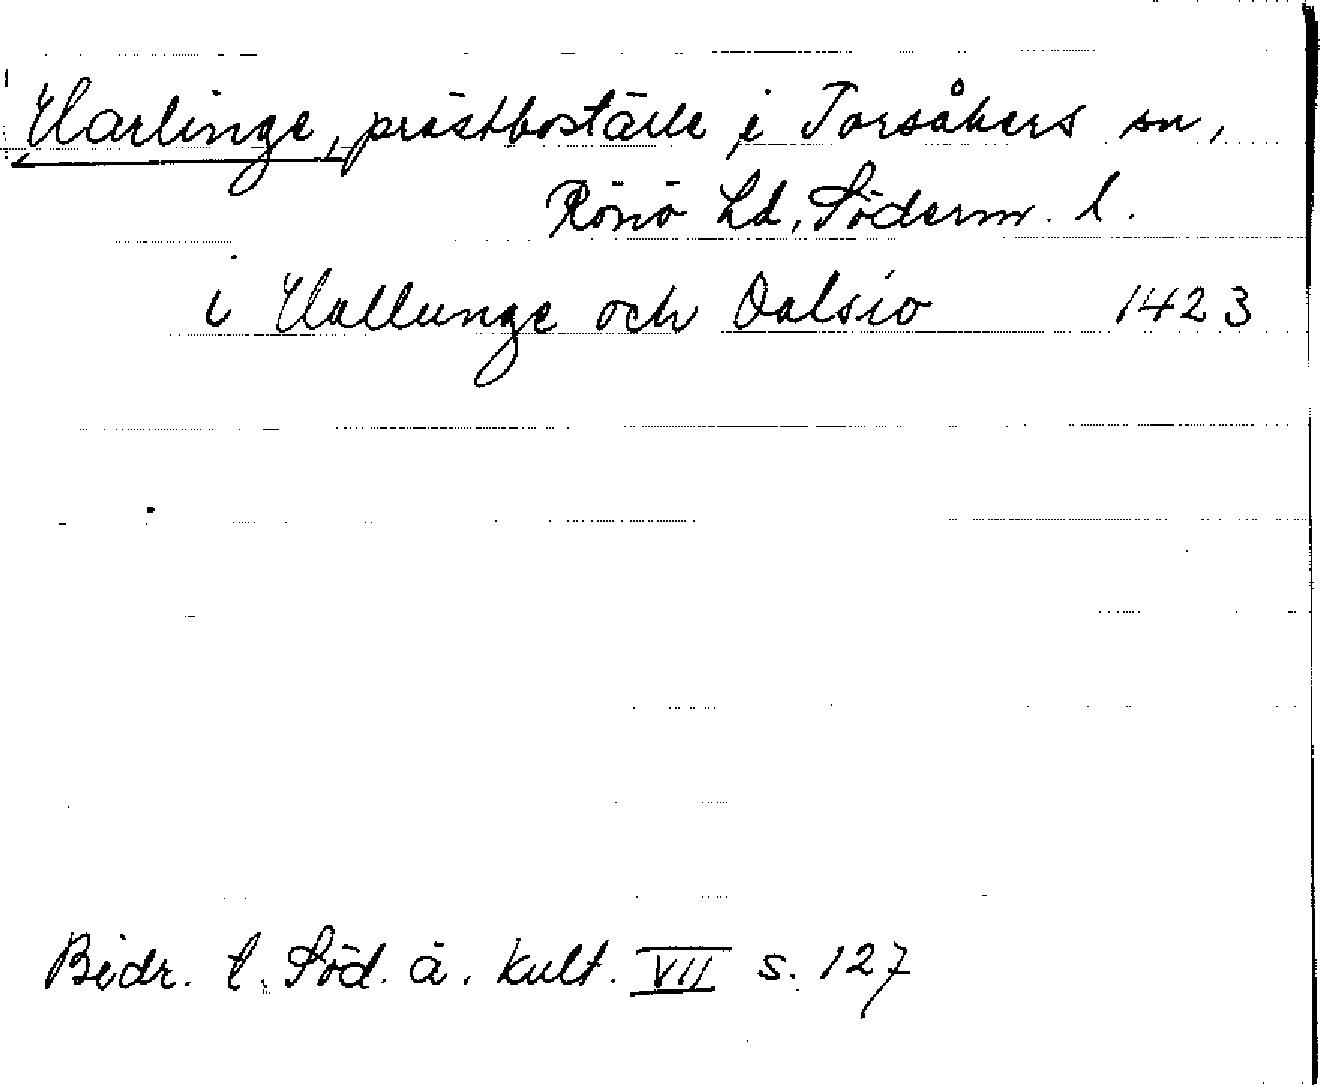 Harlinge, prästboställe i Torsåkers sn,
Rönö hd, Söderm. l.
i Hallunge och Dalsio 1423
Bidr. t. Söd. ä. kult. VII s. 127